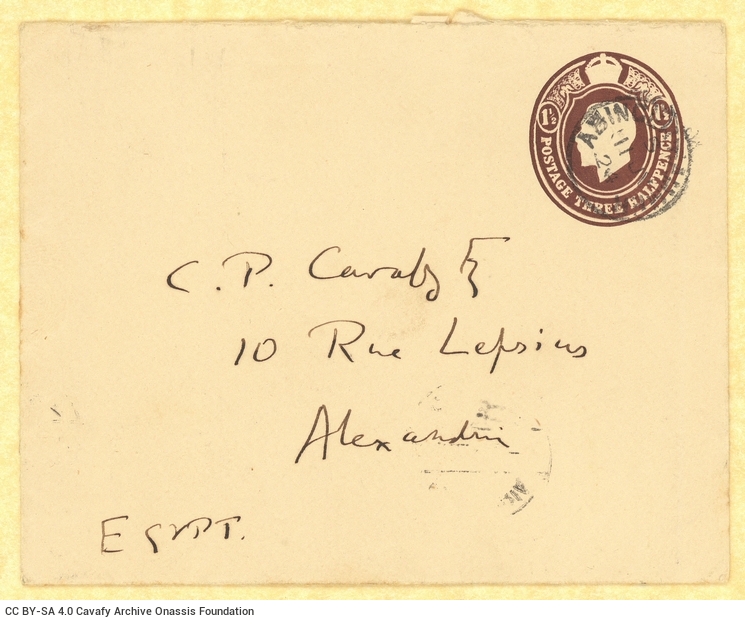 1½ 1½
POSTAGE THREE HALFPENCE
C. P. Cavafy Esq
10 Rue Lepsius
Alexandria
EGYPT.
CC BY-SA 4.0 Cavafy Archive Onassis Foundation